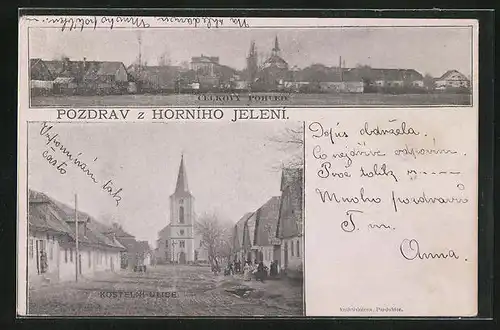 Na shledanou Mnoho políbení
CELKOVÝ POHLED
POZDRAV z HORNÍHO JELENÍ.
Vzpomínám tak
často
KOSTELNÍ ULICE
Dopis obdržela.
Co nejdříve odpovím.
Mnoho pozdravů
T. m.
Anna.
Pardubice.